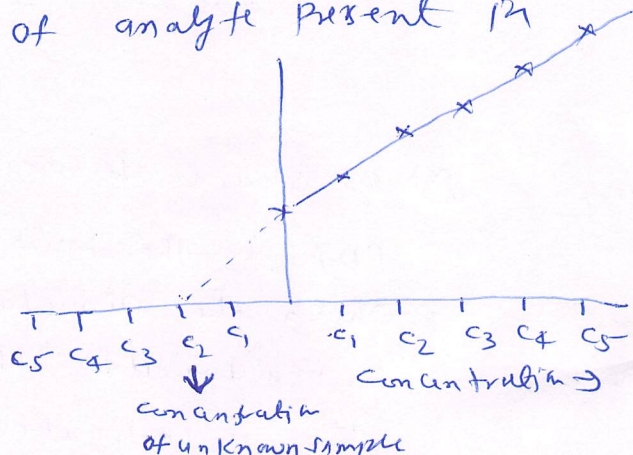 of analyte present in
C5 C4 C3 C2 C1 C1 C2 C3 C4 C5
concentration →
concentration
of unknown sample